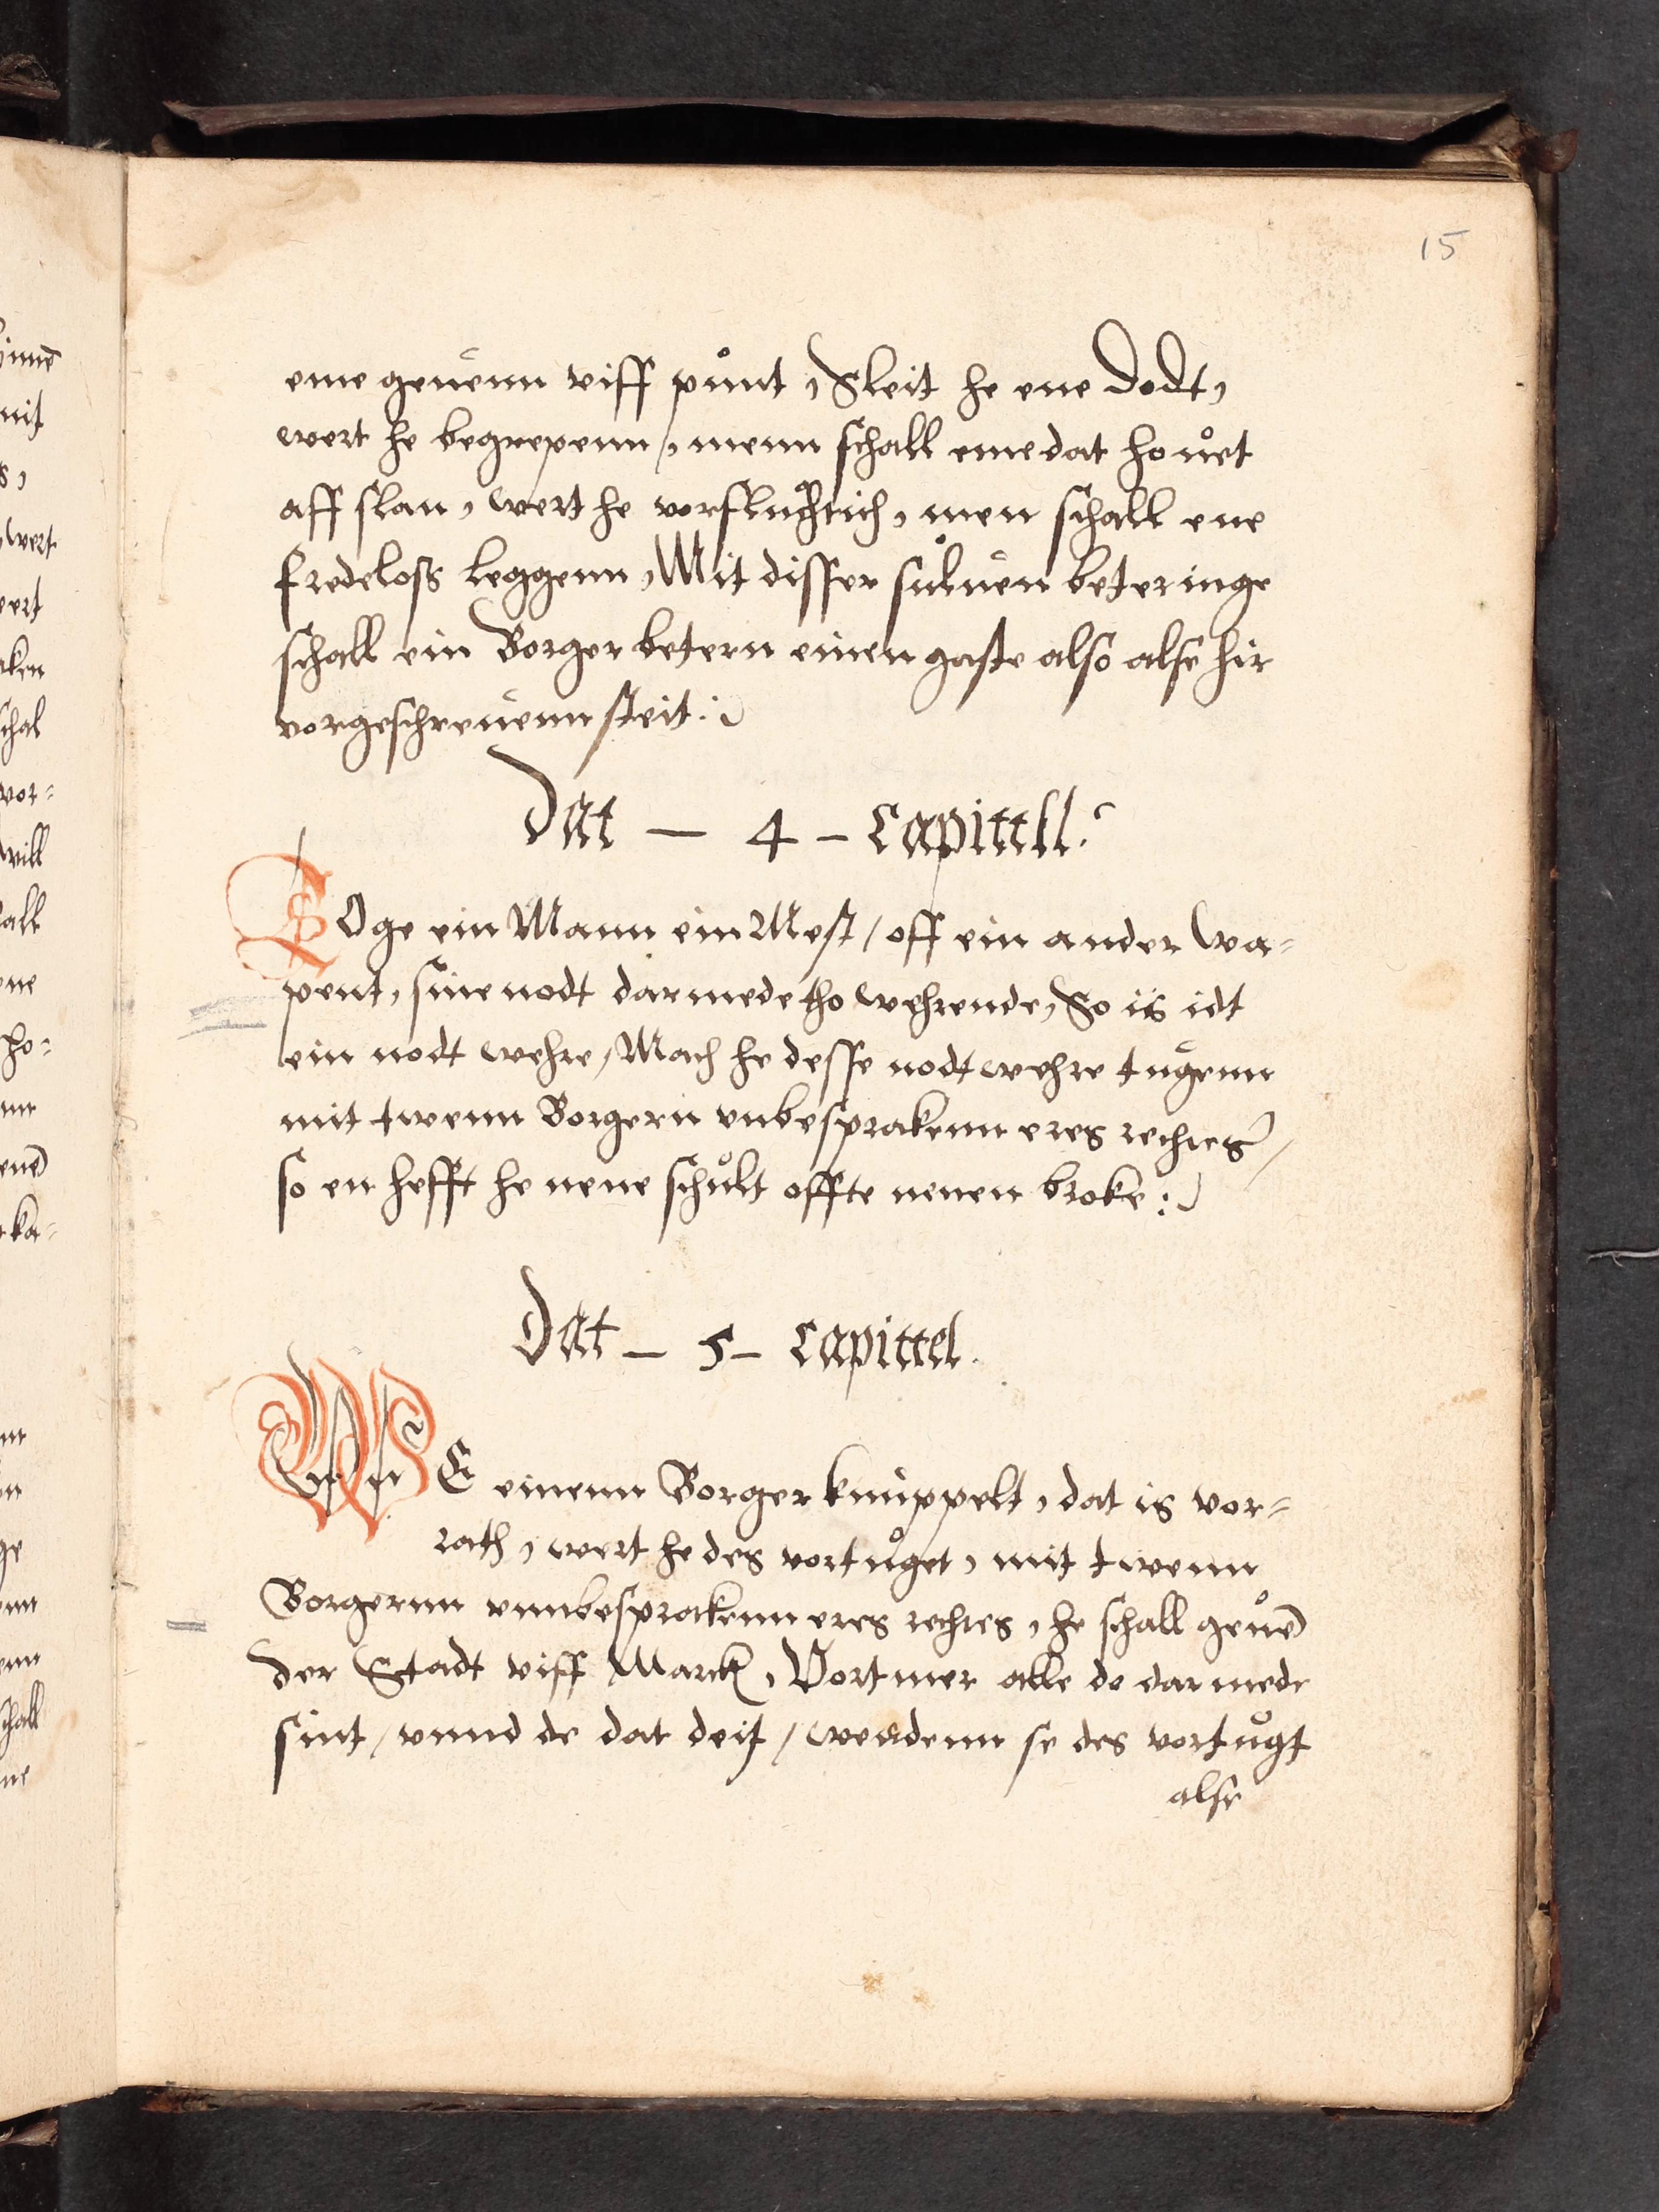 15
eme geuenn viff punt, Sleit he ene dodt,
wert he begrepenn, menn schall eme dat houet
aff slan, wert he vorfluchtich, men schall ene
fredeloß leggenn, Mit disser suluen beteringe
schall ein Borger betern einen gaste also alse hir
vorgeschreuenn steit :
Dat — 4 — Capittell.
TOge ein Mann ein Mest / off ein ander wa=
pent, sine nodt darmede tho wehrende, So is idt
ein nodt wehre, Mach he desse nodt wehre tugenn
mit twenn Borgern vnbesprakenn eres rechtes /
so en hefft he nene schult offte nenen broke :
Dat — 5 — Capittel.
WE einenn Borger knuppelt, dat is vor=
rath, wert he des vortuget, mit twenn
Borgernn vnnbesprakenn eres rechtes, he schall geuē
der Stadt viff Marck, Vortmer alle de darmede
sint / vnnd de dat deit / werdenn se des vortugt
alse